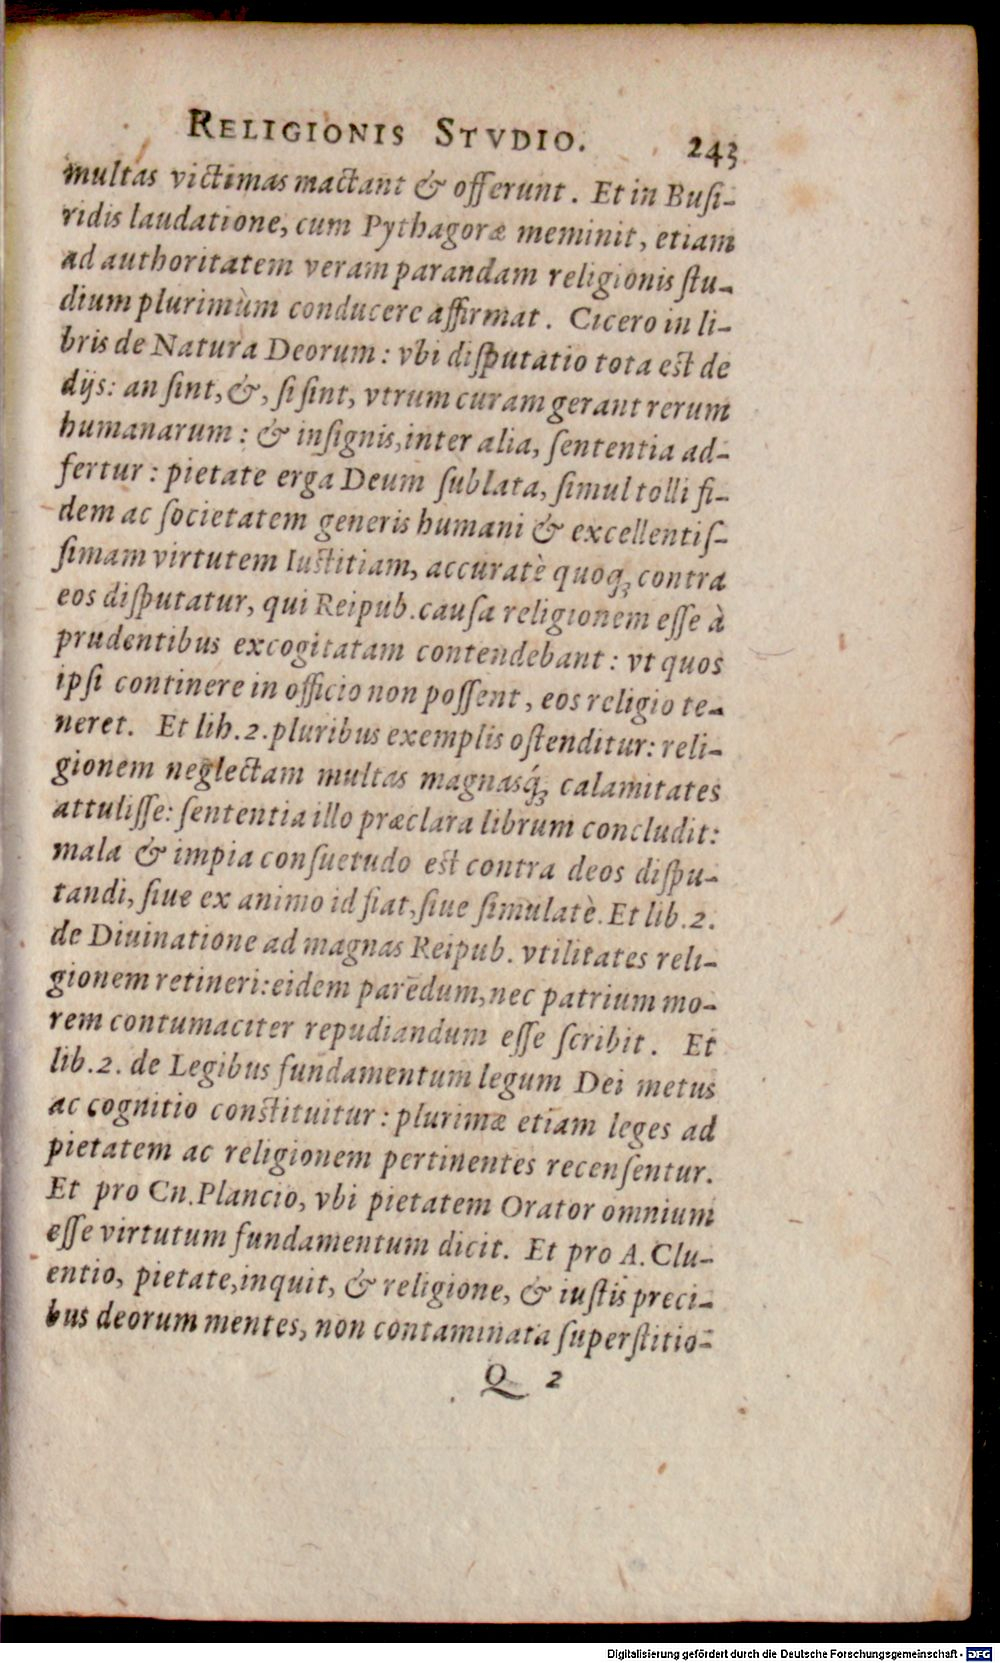 RELIGIONIS STVDIO. 243
multas victimas mactant & offerunt. Et in Busi-
ridis laudatione, cum Pythagoræ meminit, etiam
ad authoritatem veram parandam religionis stu-
dium plurimùm conducere affirmat. Cicero in li-
bris de Natura Deorum: vbi disputatio tota est de
dijs: an sint, &, si sint, vtrum curam gerant rerum
humanarum: & insignis, inter alia, sententia ad-
fertur: pietate erga Deum sublata, simul tolli fi-
dem ac societatem generis humani & excellentis-
simam virtutem Iustitiam, accuratè quoq; contra
eos disputatur, qui Reipub. causa religionem esse à
prudentibus excogitatam contendebant: vt quos
ipsi continere in officio non possent, eos religio te-
neret. Et lib. 2. pluribus exemplis ostenditur: reli-
gionem neglectam multas magnasq́; calamitates
attulisse: sententia illo præclara librum concludit:
mala & impia consuetudo est contra deos dispu-
tandi, siue ex animo id fiat, siue simulatè. Et lib. 2.
de Diuinatione ad magnas Reipub. vtilitates reli-
gionem retineri: eidem parēdum, nec patrium mo-
rem contumaciter repudiandum esse scribit. Et
lib. 2. de Legibus fundamentum legum Dei metus
ac cognitio constituitur: plurimæ etiam leges ad
pietatem ac religionem pertinentes recensentur.
Et pro Cn. Plancio, vbi pietatem Orator omnium
esse virtutum fundamentum dicit. Et pro A. Clu-
entio, pietate, inquit, & religione, & iustis preci-
bus deorum mentes, non contaminata superstitio-
Q 2
Digitalisierung gefördert durch die Deutsche Forschungsgemeinschaft - DFG